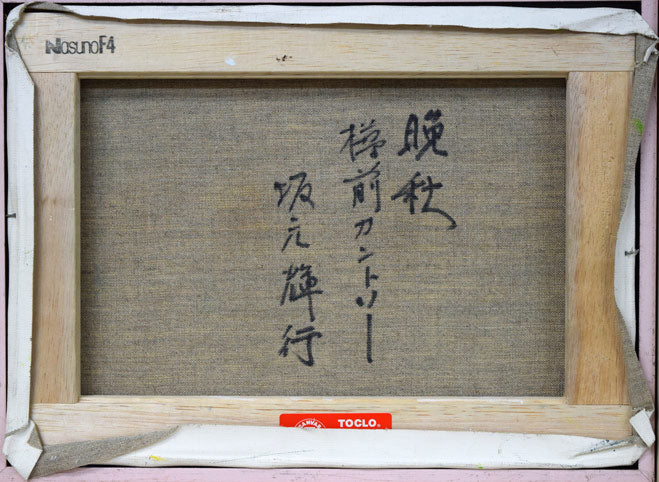 NasunoF4
晩秋
樽前カントリー
坂元輝行
CANVAS
TOCLO®